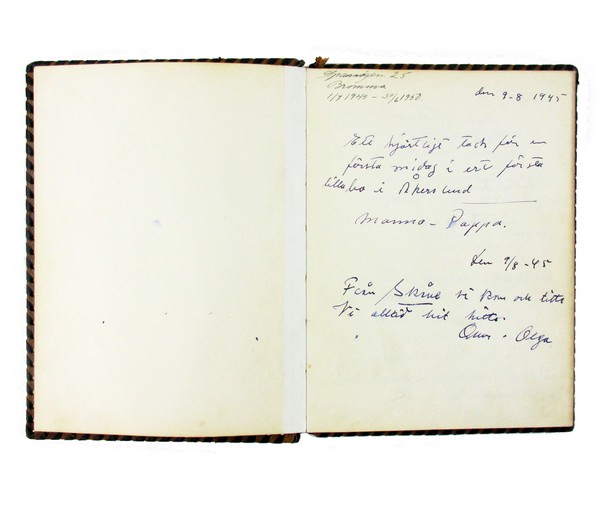 25
Bromma
1/7 1945 – 30/6 1950
den 9-8 1945
Ett hjärtligt tack för en
första midag i ert första
lilla bo i Åkerslund
Mamma – Pappa.
den 9/8 -45
Från Skåne vi kom och titta
Vi alltid hit hitta.
Olga